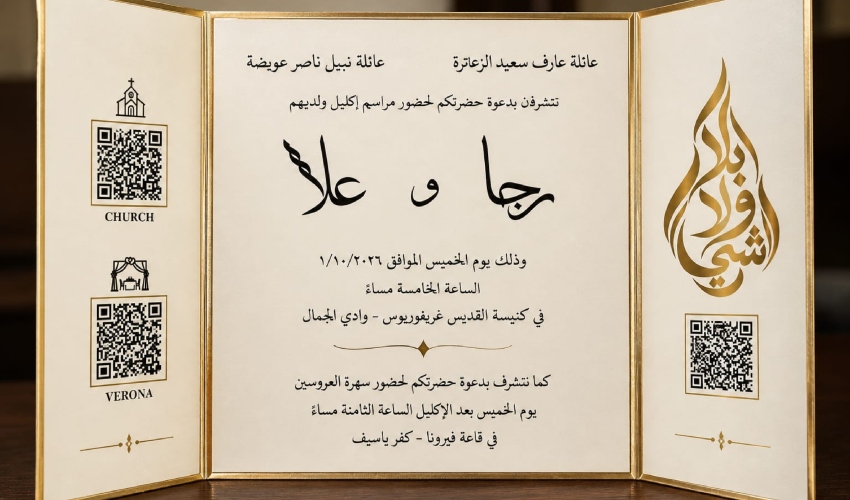 عائلة عارف سعيد الزعاترة
عائلة نبيل ناصر عويضة
نتشرفن بدعوة حضرتكم لحضور مراسم إكليل ولديهم
رجا و علا
وذلك يوم الخميس الموافق ١/١٠/٢٠٢٦
الساعة الخامسة مساءً
في كنيسة القديس غريغوريوس - وادي الجمال
كما نتشرف بدعوة حضرتكم لحضور سهرة العروسين
يوم الخميس بعد الإكليل الساعة الثامنة مساءً
في قاعة فيرونا - كفر ياسيف
CHURCH
VERONA
بلا
ولا
اشي